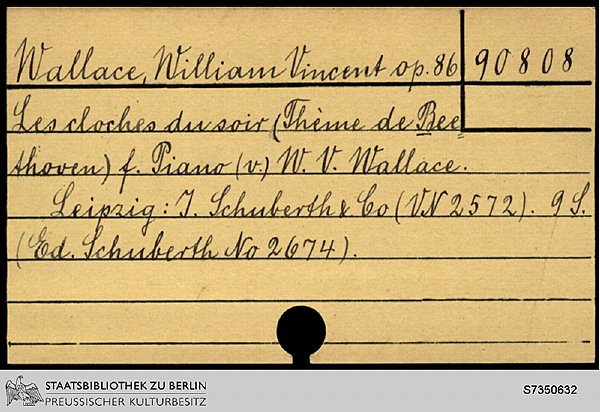 Wallace, William Vincent op. 86
90808
Les cloches du soir (Thème de Bee
thoven) f. Piano (v.) W. V. Wallace.
Leipzig: J. Schuberth & Co (VN 2572). 9 S.
(Ed. Schuberth No 2674).
STAATSBIBLIOTHEK ZU BERLIN
PREUSSISCHER KULTURBESITZ
S7350632